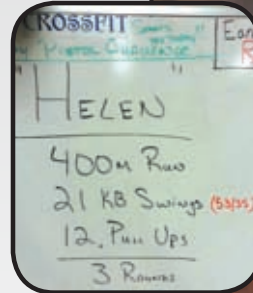 CROSSFIT
Pistol Challenge
Ear
R
" HELEN "
400m Run
21 KB Swings (53/35)
12 Pull Ups
3 Rounds